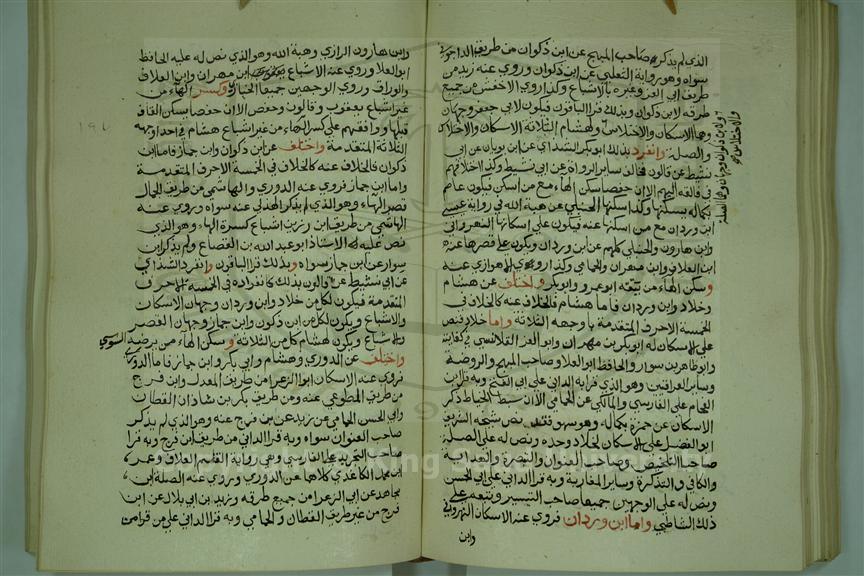 الذي لم يذكر صاحب المبهج عن ابن ذكوان من طريق الداجوني
سواه وهو رواية الثعلبي عن ابن ذكوان وروي عنه زيد من
طريق ابي العز وغيره بالاشباع وكذا روي الاخفش من جميع
طرقه لابن ذكوان وبذلك قرا الباقون فيكون لابي جعفر وجهان
وهما الاسكان والاختلاس ولهشام الثلاثة الاسكان والاختلاس
والصلة وانفرد بذلك ابو بكر الشذاي عن ابن بويان عن ابي
نشيط عن قالون فخالف ساير الرواة عن ابي نشيط وكذا اختلافهم
في فالقه اليهم الا ان حفصا سكن الهاء مع من اسكن فيكون عاصم
بكماله يسكنها وكذا اسكنها الحنبلي عن هبة الله في رواية عيسى
ابن وردان مع من اسكنها عنه فيكون على اسكانها النهرواني
وابن هارون والحنبلي كلهم عن ابن وردان ويكون على قصرها عنه
ابن العلاف وابن مهران والحمامي وكذا روى الاهوازي عنه
وسكن الهاء من يتقه ابو عمرو وابو بكر واختلف عن هشام
وخلاد وابن وردان فاما هشام فالخلاف عنه كالخلاف في
الخمسة الاحرف المتقدمة باوجهه الثلاثة واما خلاد فنص
على الاسكان له ابو بكر بن مهران وابو العز القلانسي في كفايته
وابو طاهر بن سوار والحافظ ابو العلا وصاحب المبهج والروضة
وساير العراقيين وهو الذي قرا به الداني على ابي الفتح وبه قرا ابن
الفحام على الفارسي والمالكي عن الحمامي الا ان سبط الخياط ذكر
الاسكان عن حمزة بكماله وهو سهو فقد نص شيخه الشريف
ابو الفضل على الاسكان لخلاد وحده ونص له على الصلة
صاحب التلخيص وصاحب العنوان والتبصرة والهداية
والكافي والتذكرة وساير المغاربة وبه قرا الداني على ابي الحسن
ونص له على الوجهين جميعا صاحب التيسير وتبعه على
ذلك الشاطبي واما ابن وردان فروي عنه الاسكان النهرواني
وابن
ولابن ذكوان وجهان وهما الصلة
والاختلاس
وابن هارون الرازي وهبة الله وهو الذي نص له عليه الحافظ
ابو العلا وروي عنه الاشباع ابن مهران وابن العلاف
والوراق وروي الوجهين جميعا الخبازي وكسر الهاء من
غير اشباع يعقوب وقالون وحفص الا ان حفصا يسكن القاف
قبلها ووافقهم على كسر الهاء من غير اشباع هشام في احد اوجهه
الثلاثة المتقدمة واختلف عن ابن ذكوان وابن جماز فاما ابن
ذكوان فالخلاف عنه كالخلاف في الخمسة الاحرف المتقدمة
واما ابن جماز فروي عنه الدوري والهاشمي من طريق الجمال
قصر الهاء وهو الذي لم يذكر الهذلي عنه سواه وروي عنه
الهاشمي من طريق ابن رزين اشباع كسرة الهاء وهو الذي
نص عليه له الاستاذ ابو عبد الله بن القصاع ولم يذكر ابن
سوار عن ابن جماز سواه وبذلك قرا الباقون وانفرد الشذاي
عن ابي نشيط عن قالون بذلك كانفراده في الخمسة الاحرف
المتقدمة فيكون لكل من خلاد وابن وردان وجهان الاسكان
والاشباع ويكون لكل من ابن ذكوان وابن جماز وجهان القصر
والاشباع ويكون لهشام كل من الثلاثة وسكن الهاء من يرضه السوسي
واختلف عن الدوري وهشام وابي بكر وابن جماز فاما الدوري
فروي عنه الاسكان ابو الزعرا من طريق المعدل وابن فرح
من طريق المطوعي عنه ومن طريق بكر بن شاذان القطان
وابي الحسن الحمامي عن زيد عن بن فرح عنه وهو الذي لم يذكر
صاحب العنوان سواه وبه قرا الداني من طريق ابن فرح وبه قرا
صاحب التجريد على الفارسي وهي رواية القاسم العلاف وعمر
ابن محمد الكاغدي كلاهما عن الدوري وروي عنه الصلة ابن
مجاهد عن ابي الزعرا من جميع طرقه وزيد بن ابي بلال عن ابن
فرح من غير طريق القطان والحمامي وبه قرا الداني على من قرا من